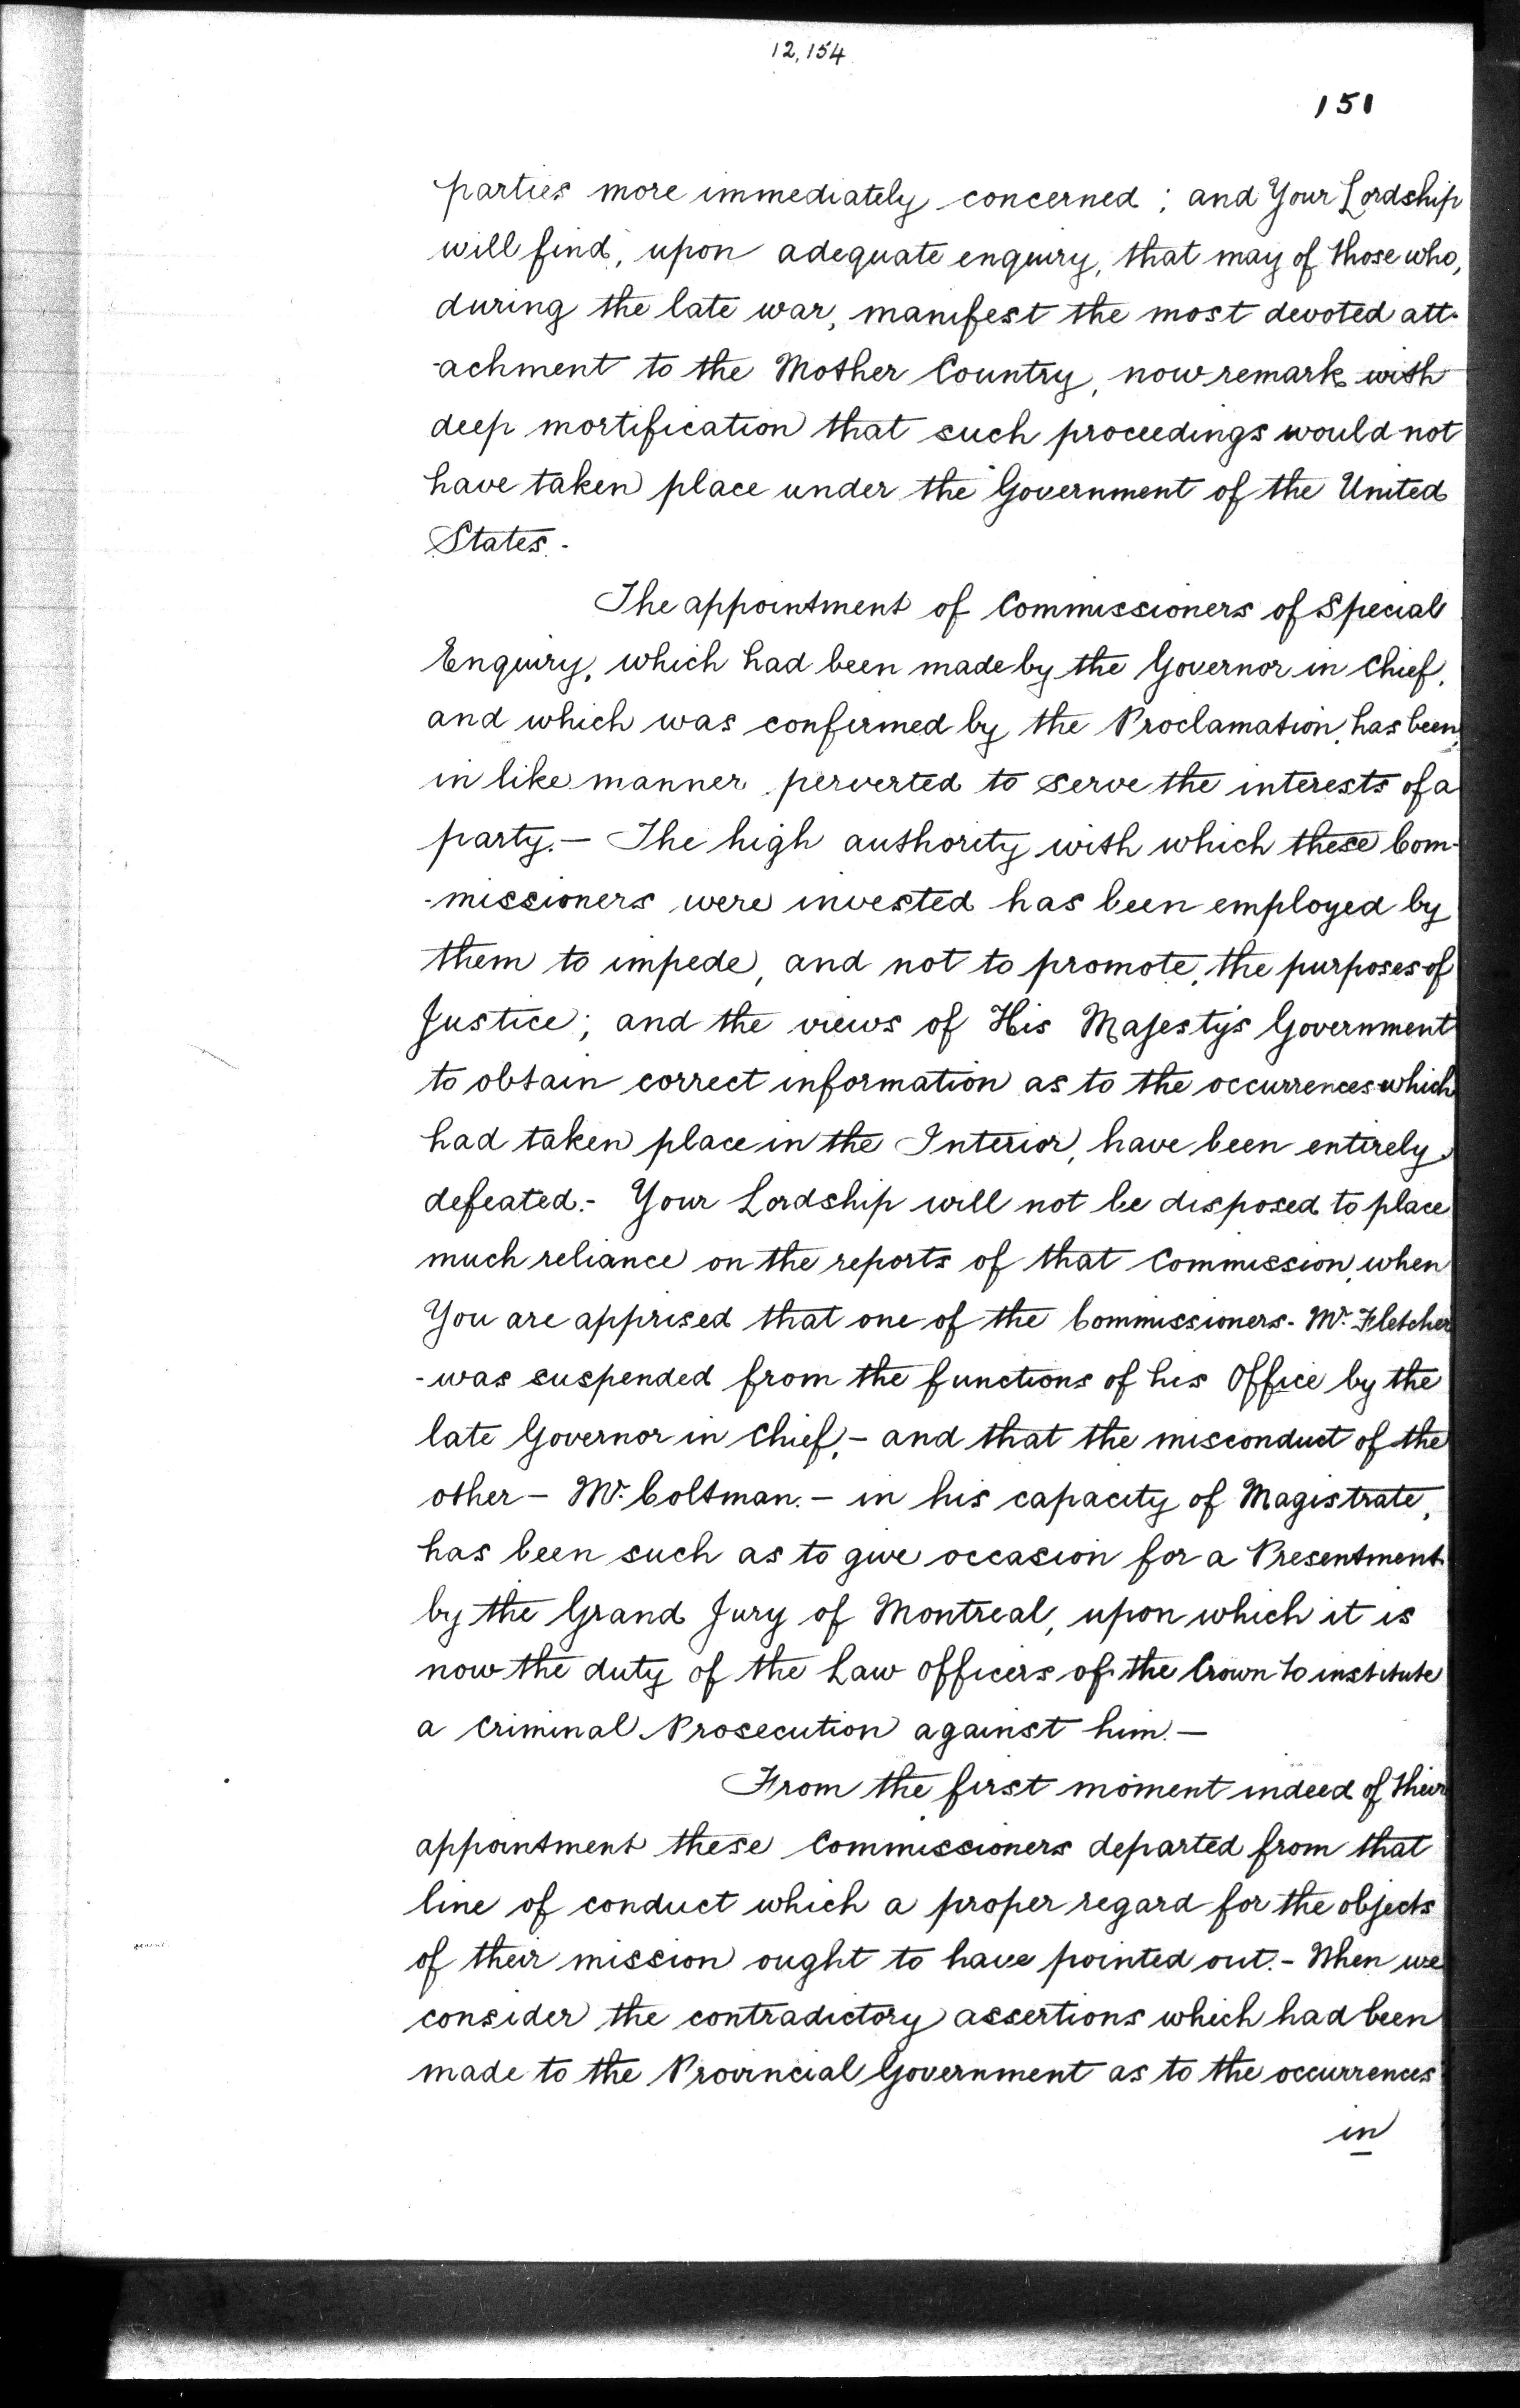 12,154
151
parties more immediately concerned; and Your Lordship
will find, upon adequate enquiry, that may of those who,
during the late war, manifest the most devoted att-
-achment to the Mother Country, now remark with
deep mortification that such proceedings would not
have taken place under the Government of the United
States.-
The appointment of Commissioners of Special
Enquiry, which had been made by the Governor in Chief,
and which was confirmed by the Proclamation, has been,
in like manner perverted to serve the interests of a
party.— The high authority with which these Com-
-missioners were invested has been employed by
them to impede, and not to promote, the purposes of
Justice; and the views of His Majesty's Government
to obtain correct information as to the occurrences which
had taken place in the Interior, have been entirely
defeated.- Your Lordship will not be disposed to place
much reliance on the reports of that Commission, when
You are apprised that one of the Commissioners- Mr. Fletcher
-was suspended from the functions of his Office by the
late Governor in Chief,- and that the misconduct of the
other — Mr. Coltman. — in his capacity of Magistrate,
has been such as to give occasion for a Presentment
by the Grand Jury of Montreal, upon which it is
now the duty of the Law Officers of the Crown to institute
a Criminal Prosecution against him.—
From the first moment indeed of their
appointment these Commissioners departed from that
line of conduct which a proper regard for the objects
of their mission ought to have pointed out.- When we
consider the contradictory assertions which had been
made to the Provincial Government as to the occurrences
in